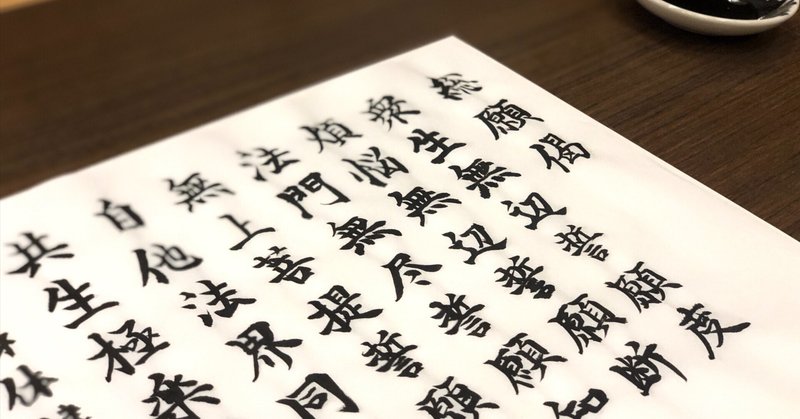 総願偈
衆生無辺誓願度
煩悩無辺誓願断
法門無尽誓願知
無上菩提誓願
自他法界同
共生極楽
体